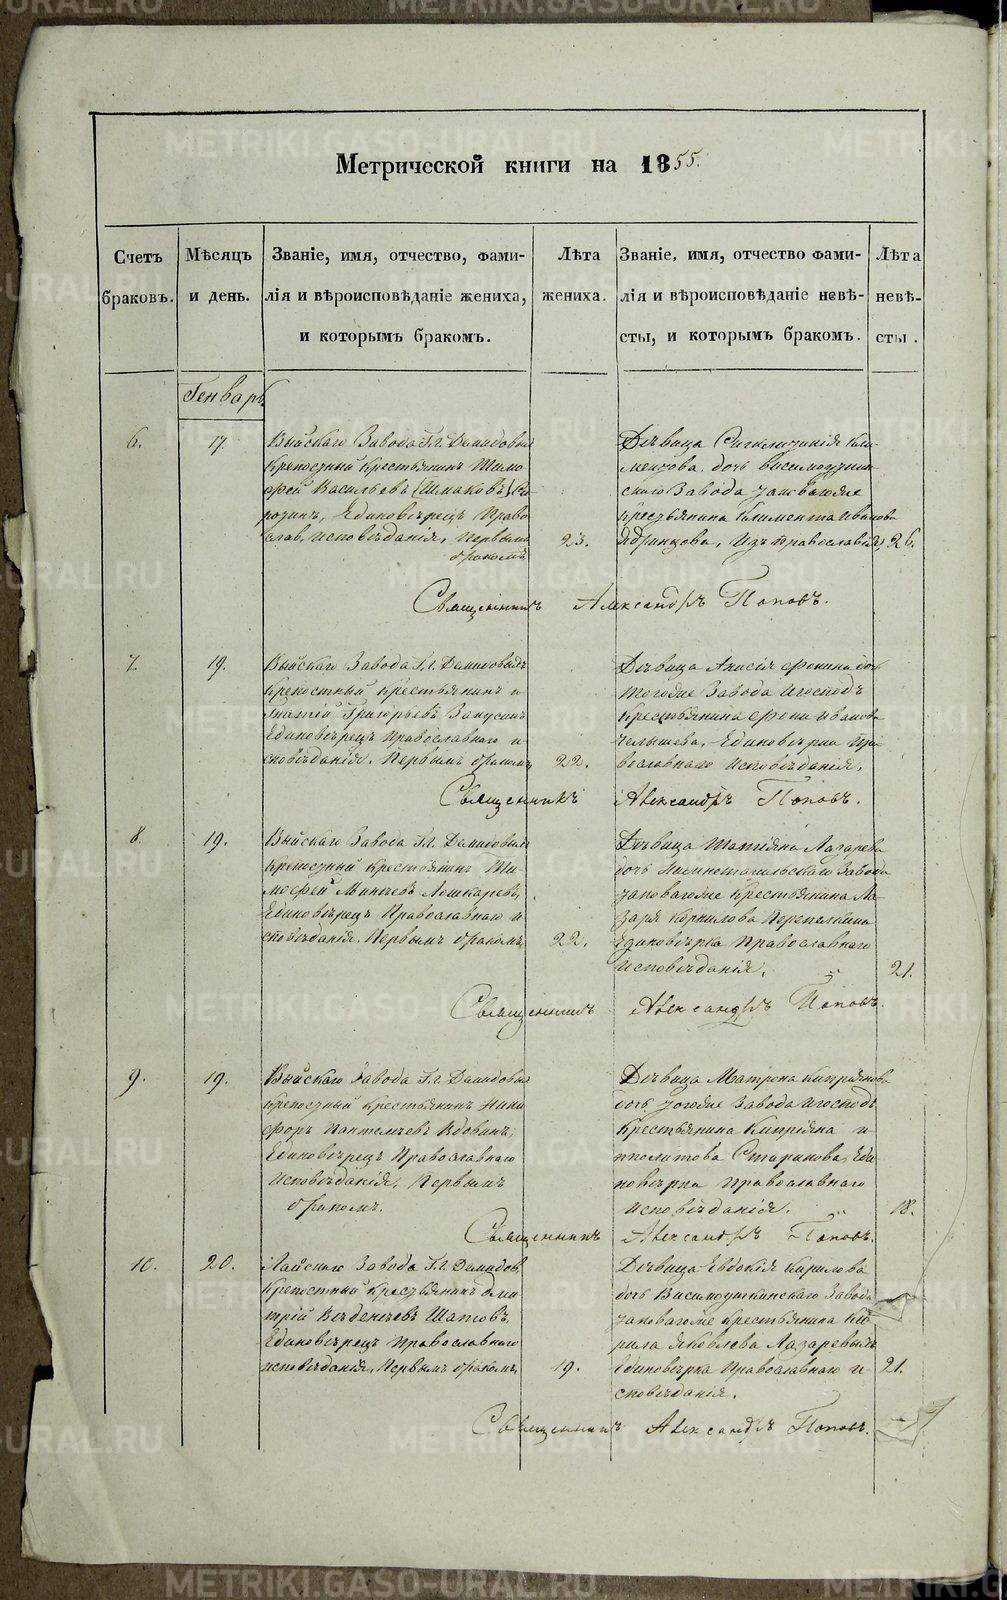 Метрической книги на 1855.
Счетъ браковъ.
Мѣсяцъ и день.
Званіе, имя, отчество, фами-
лія и вѣроисповѣданіе жениха,
и которымъ бракомъ.
Лѣта жениха.
Званіе, имя, отчество фами-
лія и вѣроисповѣданіе невѣ-
сты, и которымъ бракомъ.
Лѣта невѣ-
сты.
Генварь
6.
17
Выйскаго Завода Гг. Демидовыхъ
крепостный крестьянинъ Тимо
фей Васильевъ (Шмаковъ)
Единовѣрецъ Право
слав. исповѣданія, первымъ
бракомъ
23.
Дѣвица
дочь Висимоуткин-
скаго Завода
крестьянина Климента Иванова
Ядринцова, православія,
26.
Священникъ Александръ Поповъ.
7.
19.
Выйскаго Завода Гг. Демидовыхъ
крепостный крестьянинъ И
гнатій Григорьевъ
Единовѣрецъ Православнаго и-
сповѣданія. Первымъ бракомъ,
22.
Дѣвица Анисія Фокина дочь
тогоже Завода и господъ
крестьянина Фоки Иванова
Единовѣрка Пра-
вославнаго исповѣданія.
Священникъ Александръ Поповъ.
8.
19.
Выйскаго Завода Гг. Демидовыхъ
крепостный крестьянинъ Ти-
мофей Минѣевъ Лошкаревъ,
Единовѣрецъ Православнаго и
сповѣданія. Первымъ бракомъ,
22.
Дѣвица Татіяна Лазарева
дочь Нижнетагильскаго Завода
крестьянина Ла-
заря Корнилова Перепелкина
Единовѣрка Православнаго
исповѣданія.
21.
Священникъ Александръ Поповъ.
9.
19.
Выйскаго Завода Гг. Демидовыхъ
крепостный крестьянинъ Ники
форъ Пантелѣевъ Вдовинъ,
Единовѣрецъ Православнаго
исповѣданія. Первымъ
бракомъ.
Дѣвица Матрона Кипріянова
дочь тогоже Завода и господъ
крестьянина Кипріяна И
пполитова Старикова, Еди
новѣрка Православнаго
исповѣданія.
18.
Священникъ Александръ Поповъ.
10.
20.
Лайскаго Завода Гг. Демидов.
крепостный крестьянинъ Дми
трій
Единовѣрецъ Православнаго
исповѣданія, Первымъ бракомъ,
19.
Дѣвица Евдокія Кирилова
дочь Висимоуткинскаго Завода
крестьянина Ки
рила Яковлева Лазаревыхъ
Единовѣрка Православнаго и-
сповѣданія.
21.
Священникъ Александръ Поповъ.
METRIKI.GASO-URAL.RU